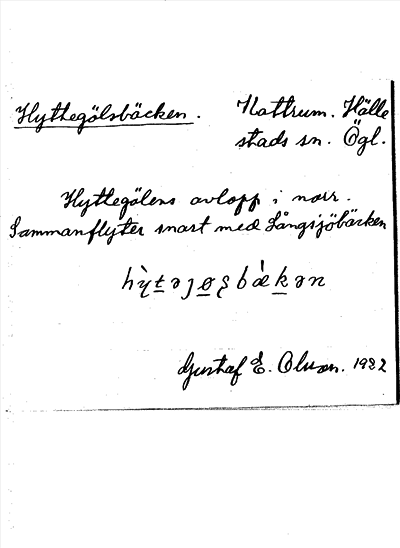 Hyttegölsbäcken. Vattrum. Hälle
stads sn. Ögl.
Hyttegölens avlopp i norr.
Sammanflyter snart med Långsjöbäcken
hỳ̖təȷøʂbæ̀kən
Gustaf E. Olsson. 1932